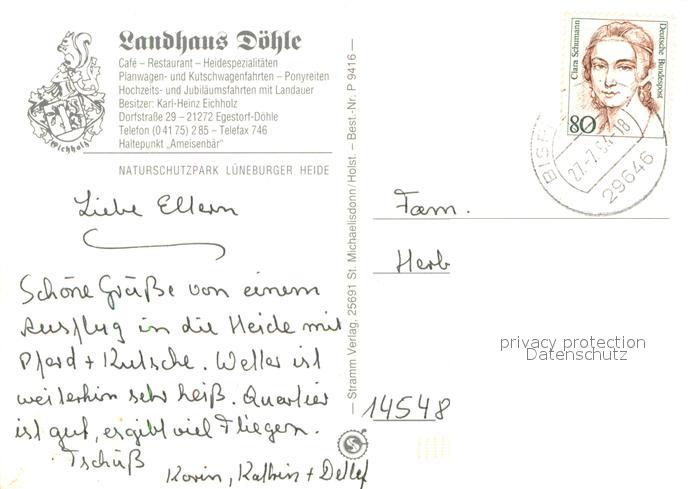 Landhaus Döhle
Café – Restaurant – Heidespezialitäten
Planwagen- und Kutschwagenfahrten – Ponyreiten
Hochzeits- und Jubiläumsfahrten mit Landauer
Besitzer: Karl-Heinz Eichholz
Dorfstraße 29 – 21272 Egestorf-Döhle
Telefon (0 41 75) 2 85 – Telefax 746
Haltepunkt „Ameisenbär“
Eichholz
NATURSCHUTZPARK LÜNEBURGER HEIDE
Liebe Eltern
Schöne Grüße von einem
Ausflug in die Heide mit
Pferd + Kutsche. Wetter ist
weiterhin sehr heiß. Quartier
ist gut, es gibt viel Fliegen.
Tschüß
Karin, Kathrin + Detlef
— Stramm Verlag, 25691 St. Michaelisdonn/Holst. – Best.-Nr. P 9416 —
Clara Schumann
Deutsche Bundespost
80
BISP
27.-7.94-18
29646
Fam.
Herb
privacy protection
Datenschutz
14548